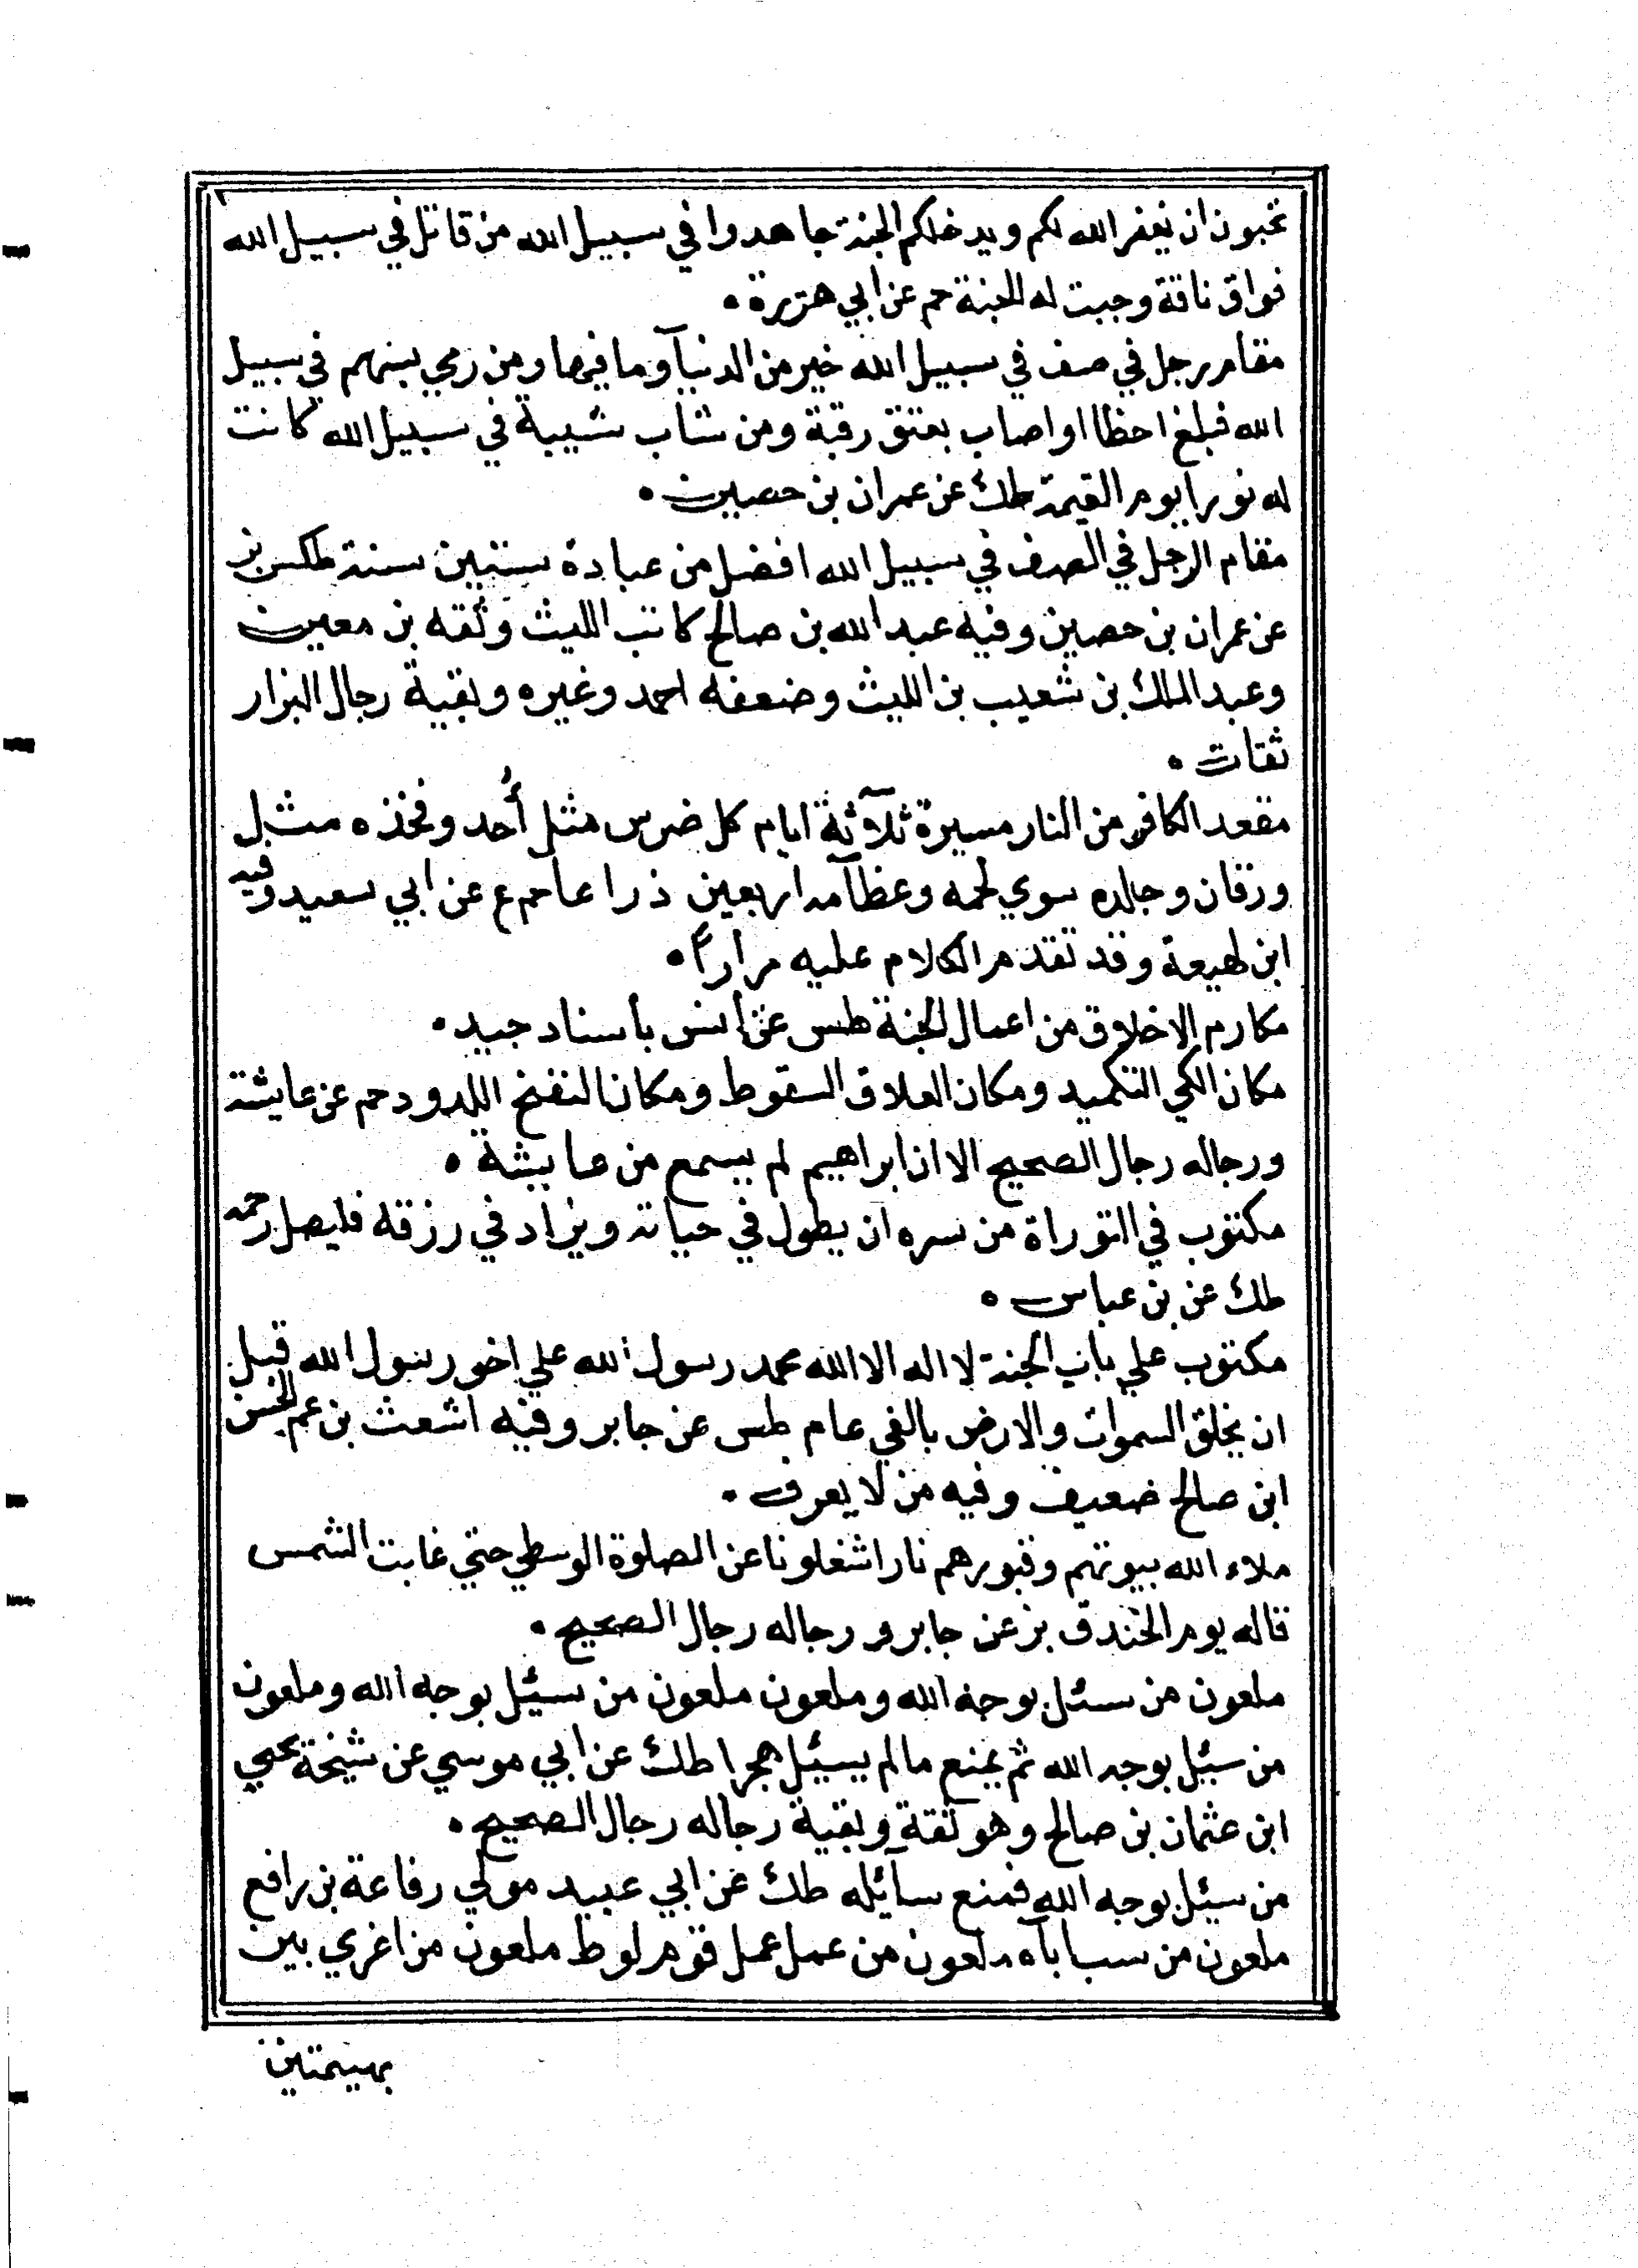 تحبون ان يغفر الله لكم ويدخلكم الجنة جاهدوا في سبيل الله من قاتل في سبيل الله
فواق ناقة وجبت له الجنة حم عن ابي هريرة ٠
مقام رجل في صف في سبيل الله خير من الدنيآ وما فيها ومن رمي بسهم في سبيل
الله فبلغ اخطا او اصاب بعتق رقبة ومن شاب شيبة في سبيل الله كانت
له نورا يوم القيمة طك عن عمران بن حصين ٠
مقام الرجل في الصف في سبيل الله افضل من عبادة ستين سنة طكس بز
عن عمران بن حصين وفيه عبد الله بن صالح كاتب الليث وثقه بن معين
وعبد الملك بن شعيب بن الليث وضعفه احمد وغيره وبقية رجال البزار
ثقات ٠
مقعد الكافر من النار مسيرة ثلآثة ايام كل ضرس مثل أُحد وفخذه مثل
ورقان وجلده سوي لحمه وعظآمه اربعين ذراعا حم ع عن ابي سعيد وفيه
ابن لهيعة وقد تقدم الكلام عليه مراراً ٠
مكارم الاخلاق من اعمال الجنة طس عن انس باسناد جيد ٠
مكان الكي التكميد ومكان العلاق السقوط ومكان النفخ اللدود حم عن عايشة
ورجاله رجال الصحيح الا ان ابراهيم لم يسمع من عايشة ٠
مكتوب في التوراة من سره ان يطول في حياته ويزاد في رزقه فليصل رحمه
طك عن بن عباس ٠
مكتوب علي باب الجنة لا اله الا الله محمد رسول الله علي اخو رسول الله قبل
ان يخلق السموات والارض بالفي عام طس عن جابر وفيه اشعث بن عم الحسن
ابن صالح ضعيف وفيه من لا يعرف ٠
ملاء الله بيوتهم وقبورهم نارا شغلونا عن الصلوة الوسطي حتي غابت الشمس
قاله يوم الخندق بز عن جابر و رجاله رجال الصحيح ٠
ملعون من سئل بوجه الله وملعون ملعون من سيئل بوجه الله وملعون
من سيئل بوجه الله ثم يمنع ما لم يسيئل هجرا طك عن ابي موسي عن شيخة يحيي
ابن عثمان بن صالح وهو ثقة وبقية رجاله رجال الصحيح ٠
من سيئل بوجه الله فمنع سآئله طك عن ابي عبيد مولي رفاعة بن رافع
ملعون من سب اباه ملعون من عمل عمل قوم لوط ملعون من اغري بين
بهيمتين